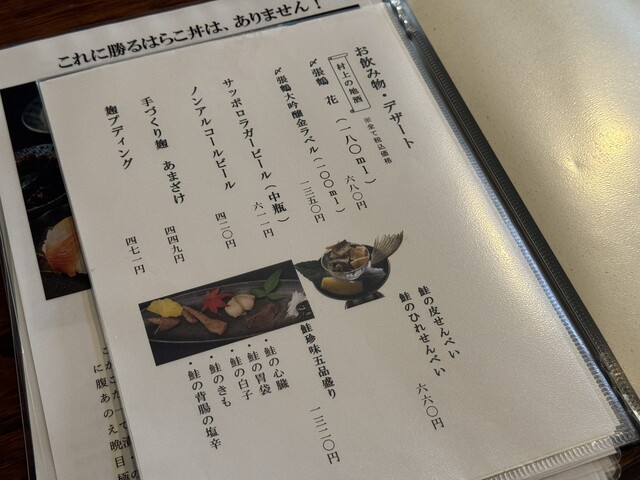 これに勝るはらこ丼は、ありません！
お飲み物・デザート
※全て税込価格
村上の地酒
〆張鶴 花（一八〇ml）
六八〇円
〆張鶴大吟醸金ラベル（一〇〇ml）
一三五〇円
サッポロラガービール（中瓶）
六一二円
ノンアルコールビール
四二〇円
手づくり麹 あまざけ
四四九円
麹プディング
四七一円
鮭の皮せんべい
鮭のひれせんべい
六六〇円
鮭珍味五品盛り
一三二〇円
・鮭の心臓
・鮭の胃袋
・鮭の白子
・鮭のきも
・鮭の背腸の塩辛